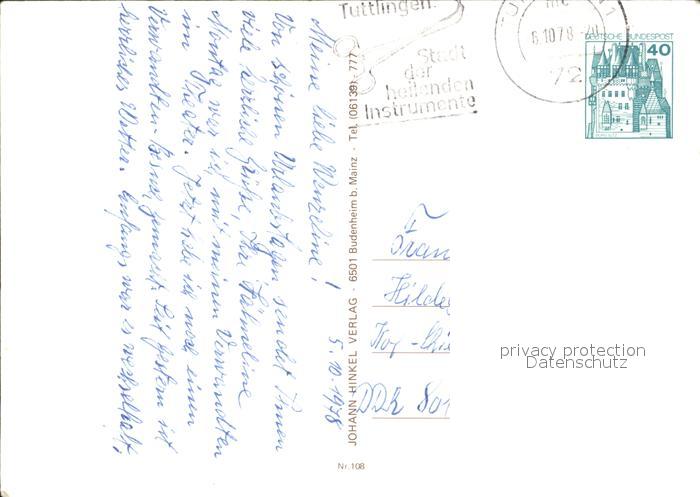 Tuttlingen.
Stadt
der
heilenden
Instrumente
6.10.78
72
DEUTSCHE BUNDESPOST
40
Meine liebe Wenzeline!
5.10.1978
Von schönen Urlaubstagen sendet Ihnen
viele herzliche Grüße, Ihre
Montag war ich mit meinen Verwandten
im Theater. Jetzt habe ich noch einen
Verwandten-Besuch gemacht. Seit gestern ist
herrliches Wetter. Anfangs war es wechselhaft,
JOHANN HINKEL VERLAG · 6501 Budenheim b. Mainz · Tel. (06139) · 777
Nr. 108
Frau
Hilde
DDR 801
privacy protection
Datenschutz